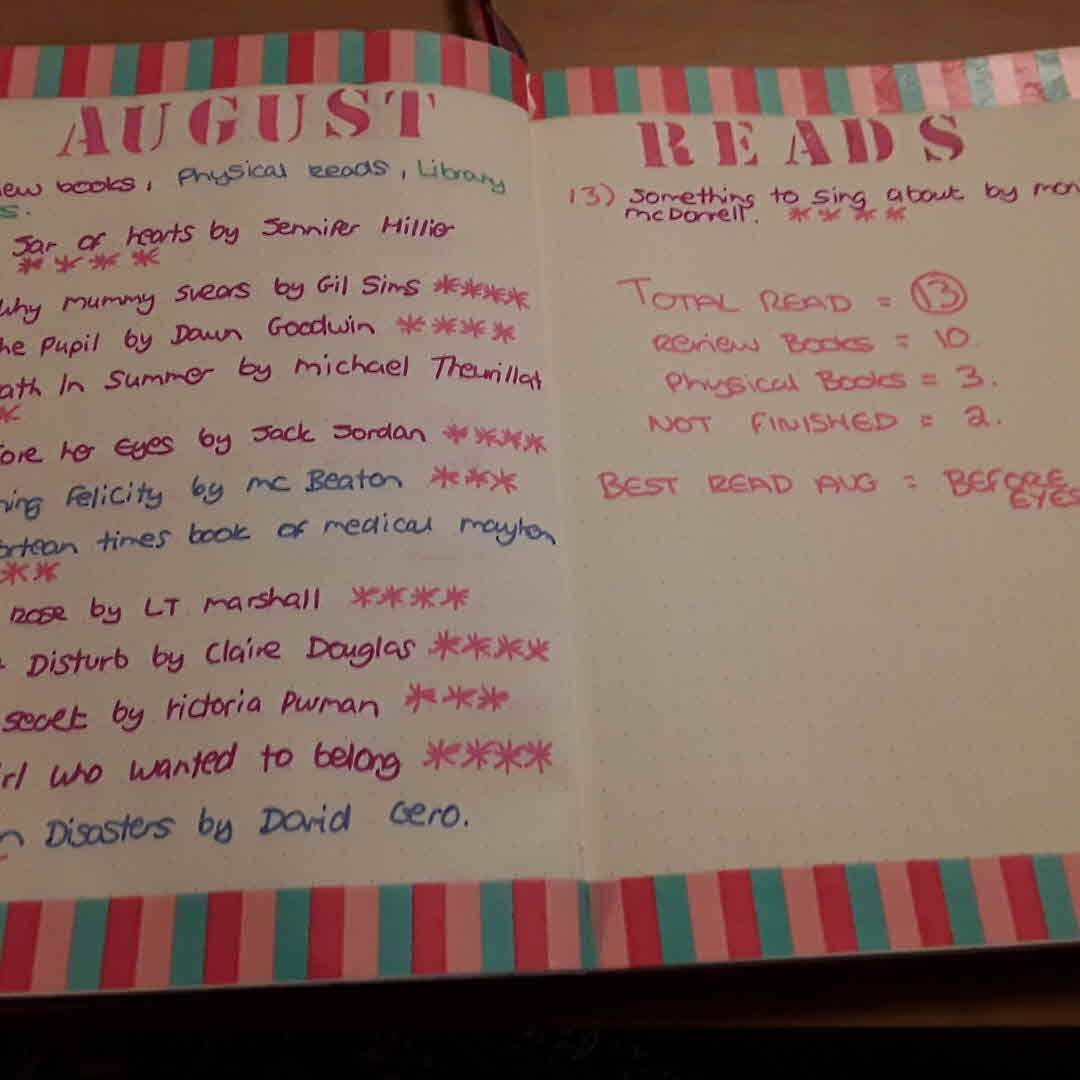 AUGUST
iew books, Physical Reads, Library
s.
Jar of hearts by Jennifer Hillier
****
why mummy swears by Gil Sims ****
he Pupil by Dawn Goodwin ****
ath In Summer by michael Theurillat
*
fore her Eyes by Jack Jordan ****
ning Felicity by mc Beaton ***
ortean times book of medical mayhem
**
Rose by LT marshall ****
t Disturb by Claire Douglas ****
secret by Victoria Purman ***
irl who wanted to belong ****
n Disasters by David Gero.
READS
13) Something to sing about by mon
mcDonnell. ****
TOTAL READ = 13
Review Books = 10.
Physical Books = 3.
NOT FINISHED = 2.
BEST READ AUG : BEFORE
EYES